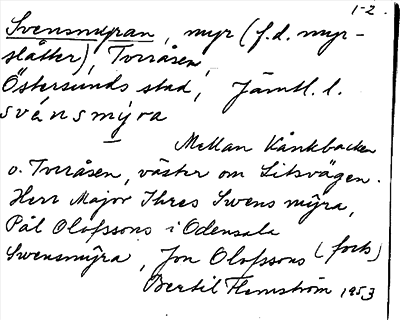 1-2.
Svensmyran, myr (f.d. myr-
slåtter), Torråsen,
Östersunds stad, Jämtl. l.
svénsmýra
Mellan Kånkbacken
o. Torråsen, väster om Litsvägen.
Herr Major Ihres Swens mÿra,
Pål Olofssons i Odensala
Swensmÿra, Jon Olofssons (forts)
Bertil Flemström 1953